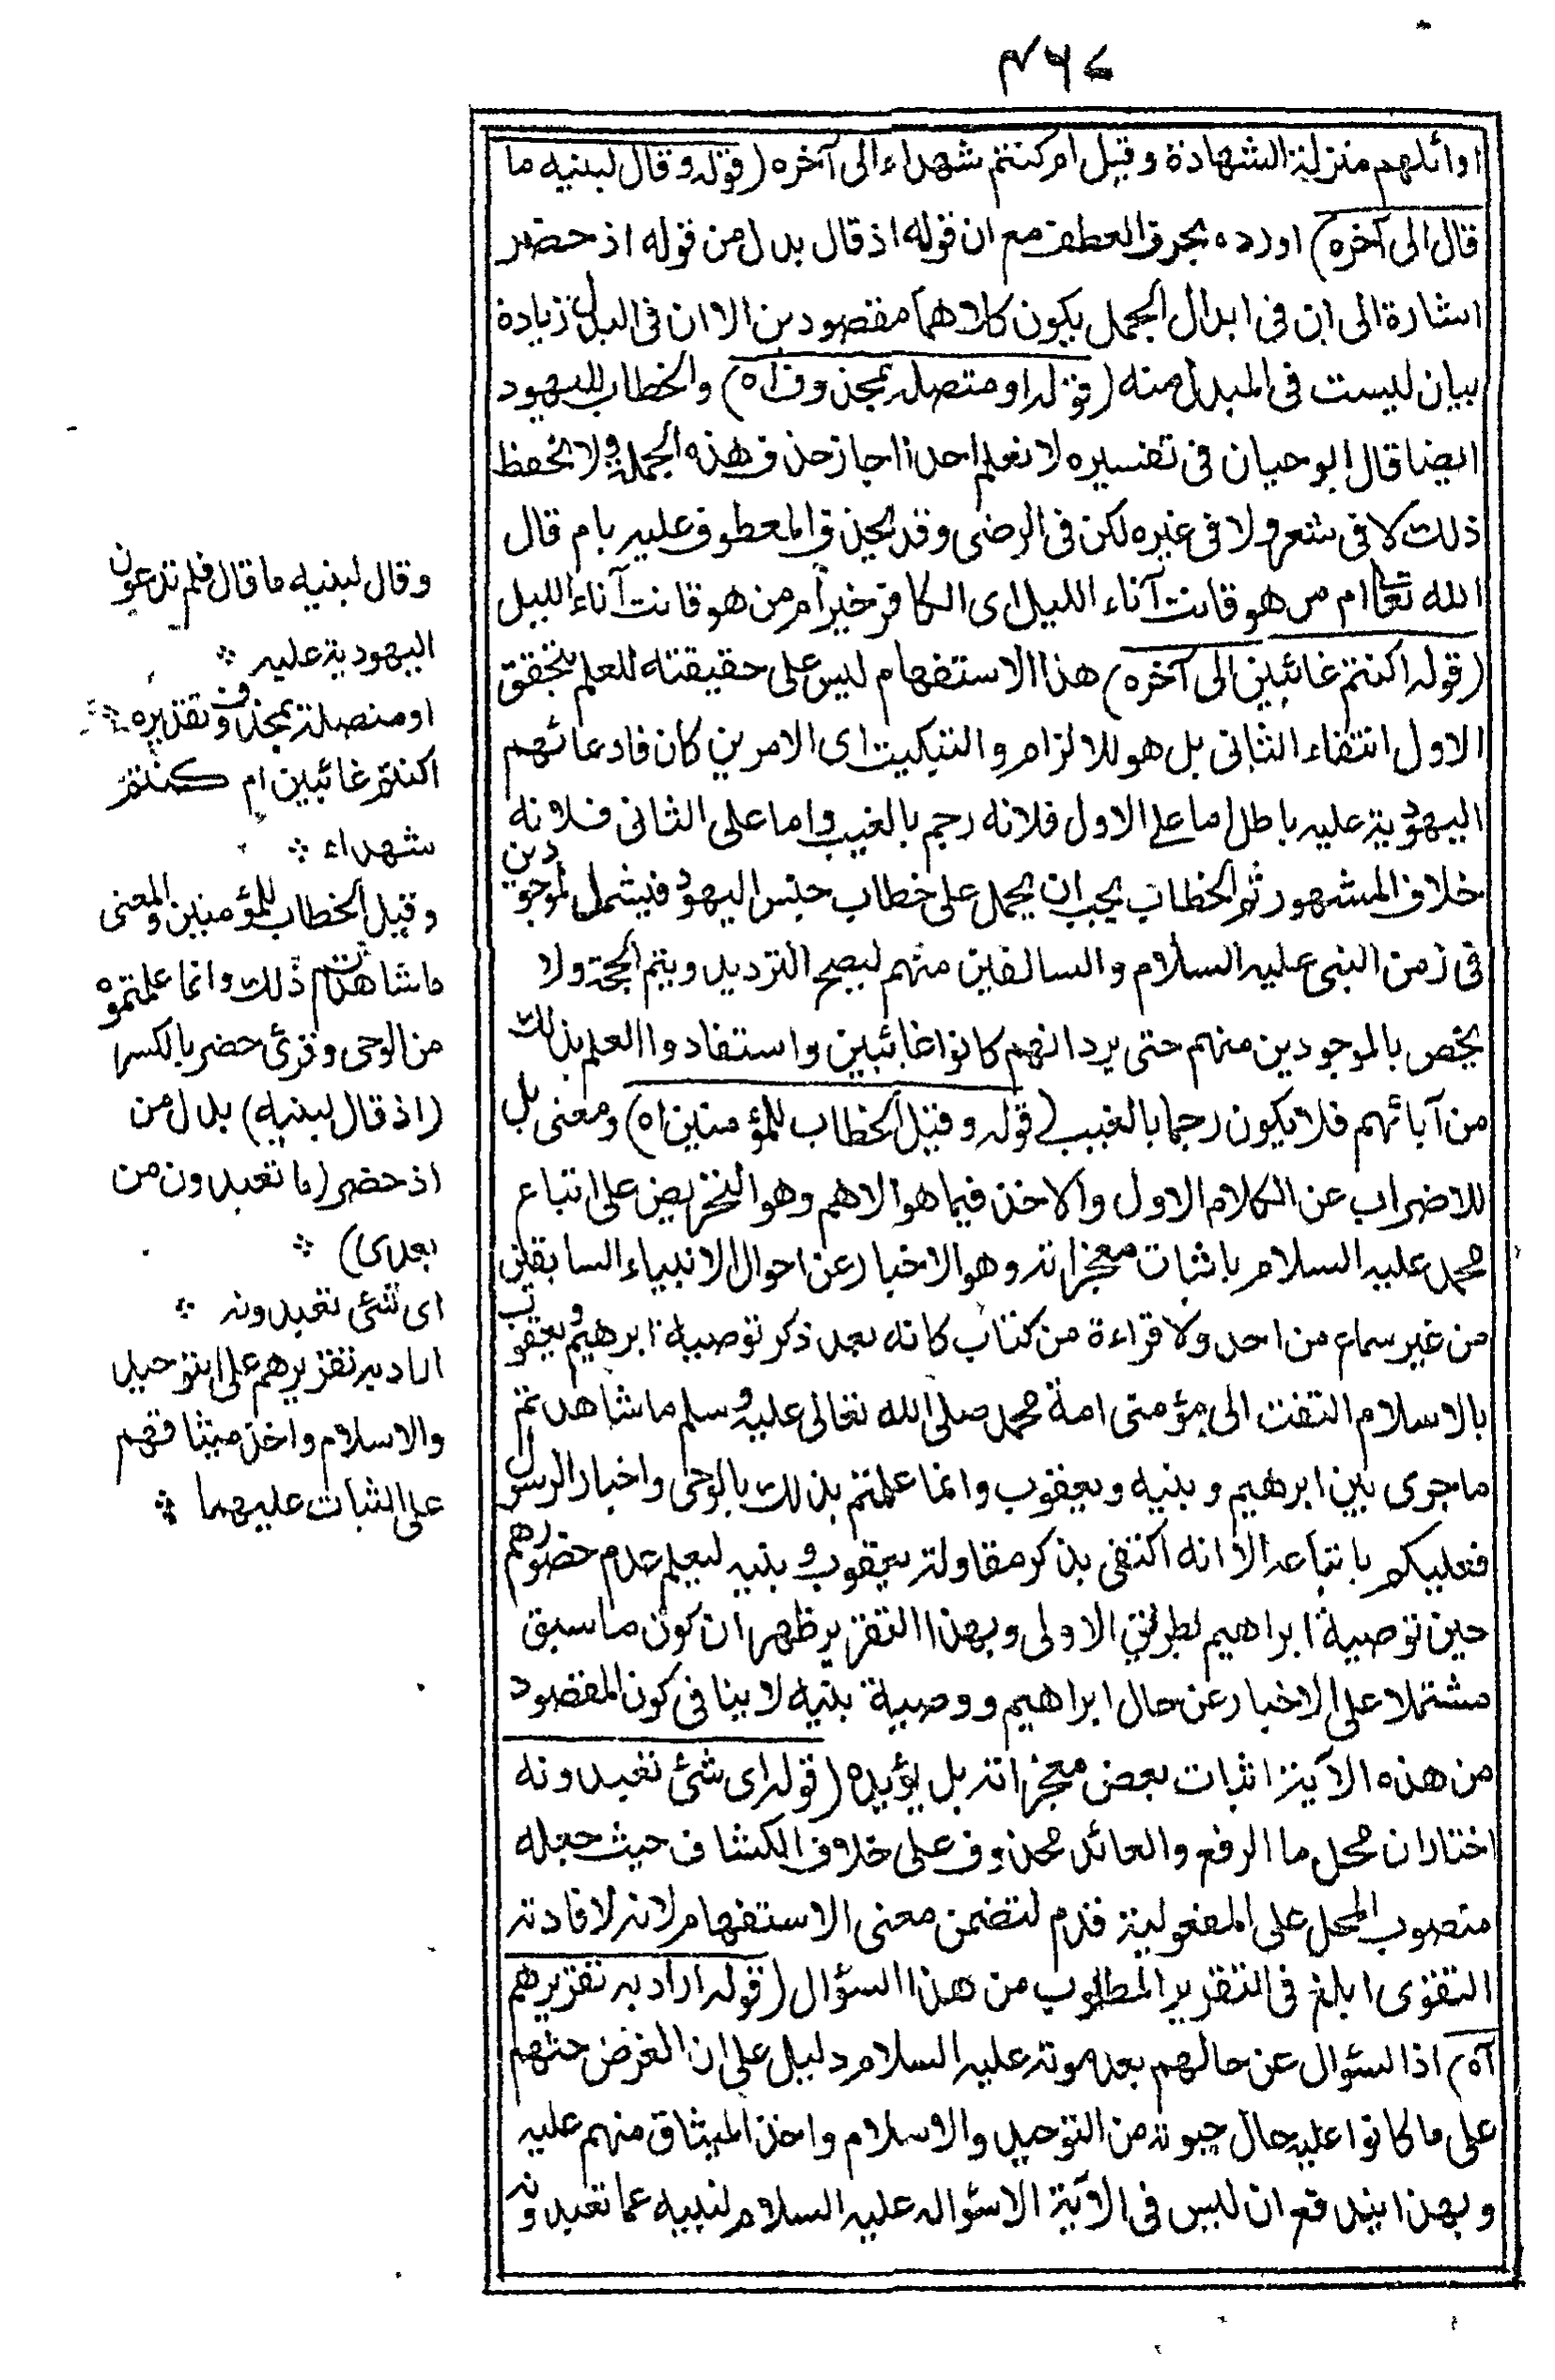 ٤٦٧
اوائلهم منزلة الشهادة وقيل ام كنتم شهداء الى آخره (قوله وقال لبنيه ما
قال الى آخره) اورده بحرف العطف مع ان قوله اذ قال بدل من قوله اذ حضر
اشارة الى ان فى ابدال الجمل يكون كلاهما مقصودين الا ان فى البدل زيادة
بيان ليست فى المبدل منه (قوله او متصلة بمحذوف اه) والخطاب لليهود
ايضا قال ابو حيان فى تفسيره لا نعلم احدا اجاز حذف هذه الجملة ولا نحفظ
ذلك لا فى شعر ولا فى غيره لكن فى الرضى وقد يحذف المعطوف عليه بام قال
الله تعا ام من هو قانت آناء الليل اى الكافر خير ام من هو قانت آناء الليل
(قوله اكنتم غائبين الى آخره) هذا الاستفهام ليس على حقيقته للعلم بتحقق
الاول انتفاء الثانى بل هو للالزام والتبكيت اى الامرين كان فادعائهم
اليهودية عليه باطل اما على الاول فلانه رجم بالغيب واما على الثانى فلانه
خلاف المشهور ثم الخطاب يجب ان يحمل على خطاب جنس اليهود فيشمل الموجودين
فى زمن النبى عليه السلام والسالفين منهم ليصح الترديد ويتم الحجة ولا
يخص بالموجودين منهم حتى يرد انهم كانوا غائبين واستفادوا العلم بذلك
من آبائهم فلا يكون رجما بالغيب (قوله وقيل الخطاب للمؤمنين اه) ومعنى بل
للاضراب عن الكلام الاول والاخذ فيما هو الاهم وهو التحريض على اتباع
محمد عليه السلام باثبات معجزاته وهو الاخبار عن احوال الانبياء السابقين
من غير سماع من احد ولا قراءة من كتاب كانه بعد ذكر توصية ابرهيم ويعقوب
بالاسلام التفت الى مؤمنى امة محمد صلى الله تعالى عليه وسلم ما شاهدتم
ما جرى بين ابرهيم وبنيه ويعقوب وانما علمتم بذلك بالوحى واخبار الرسل
فعليكم باتباعه الا انه اكتفى بذكر مقاولة يعقوب وبنيه ليعلم عدم حضورهم
حين توصية ابراهيم بطريق الاولى وبهذا التقرير ظهر ان كون ما سبق
مشتملا على الاخبار عن حال ابراهيم ووصية بنيه لا ينافى كون المقصود
من هذه الآية اثبات بعض معجزاته بل يؤيده (قوله اى شئ تعبدونه
اختار ان محل ما الرفع والعائد محذوف على خلاف الكشاف حيث جعله
منصوب المحل على المفعولية قدم لتضمن معنى الاستفهام لانه لافادته
التقوى ابلغ فى التقرير المطلوب من هذا السؤال (قوله اراد به تقريرهم
آه) اذ السؤال عن حالهم بعد موته عليه السلام دليل على ان الغرض حثهم
على ما كانوا عليه حال حيوته من التوحيد والاسلام واخذ الميثاق منهم عليه
وبهذا يندفع ان ليس فى الآية الا سؤاله عليه السلام لبنيه عما تعبدونه
وقال لبنيه ما قال فلم تدعون
اليهودية عليه ∴
او متصلة بمحذوف وتقديره ∴
اكنتم غائبين ام كنتم
شهداء ∴
وقيل الخطاب للمؤمنين والمعنى
ما شاهدتم ذلك وانما علمتموه
من الوحى وقرئ حضر بالكسر
(اذ قال لبنيه) بدل من
اذ حضر (ما تعبدون من
بعدى) ∴
اى شئ تعبدونه ∴
اراد به تقريرهم على التوحيد
والاسلام واخذ ميثاقهم
على الثبات عليهما ∴